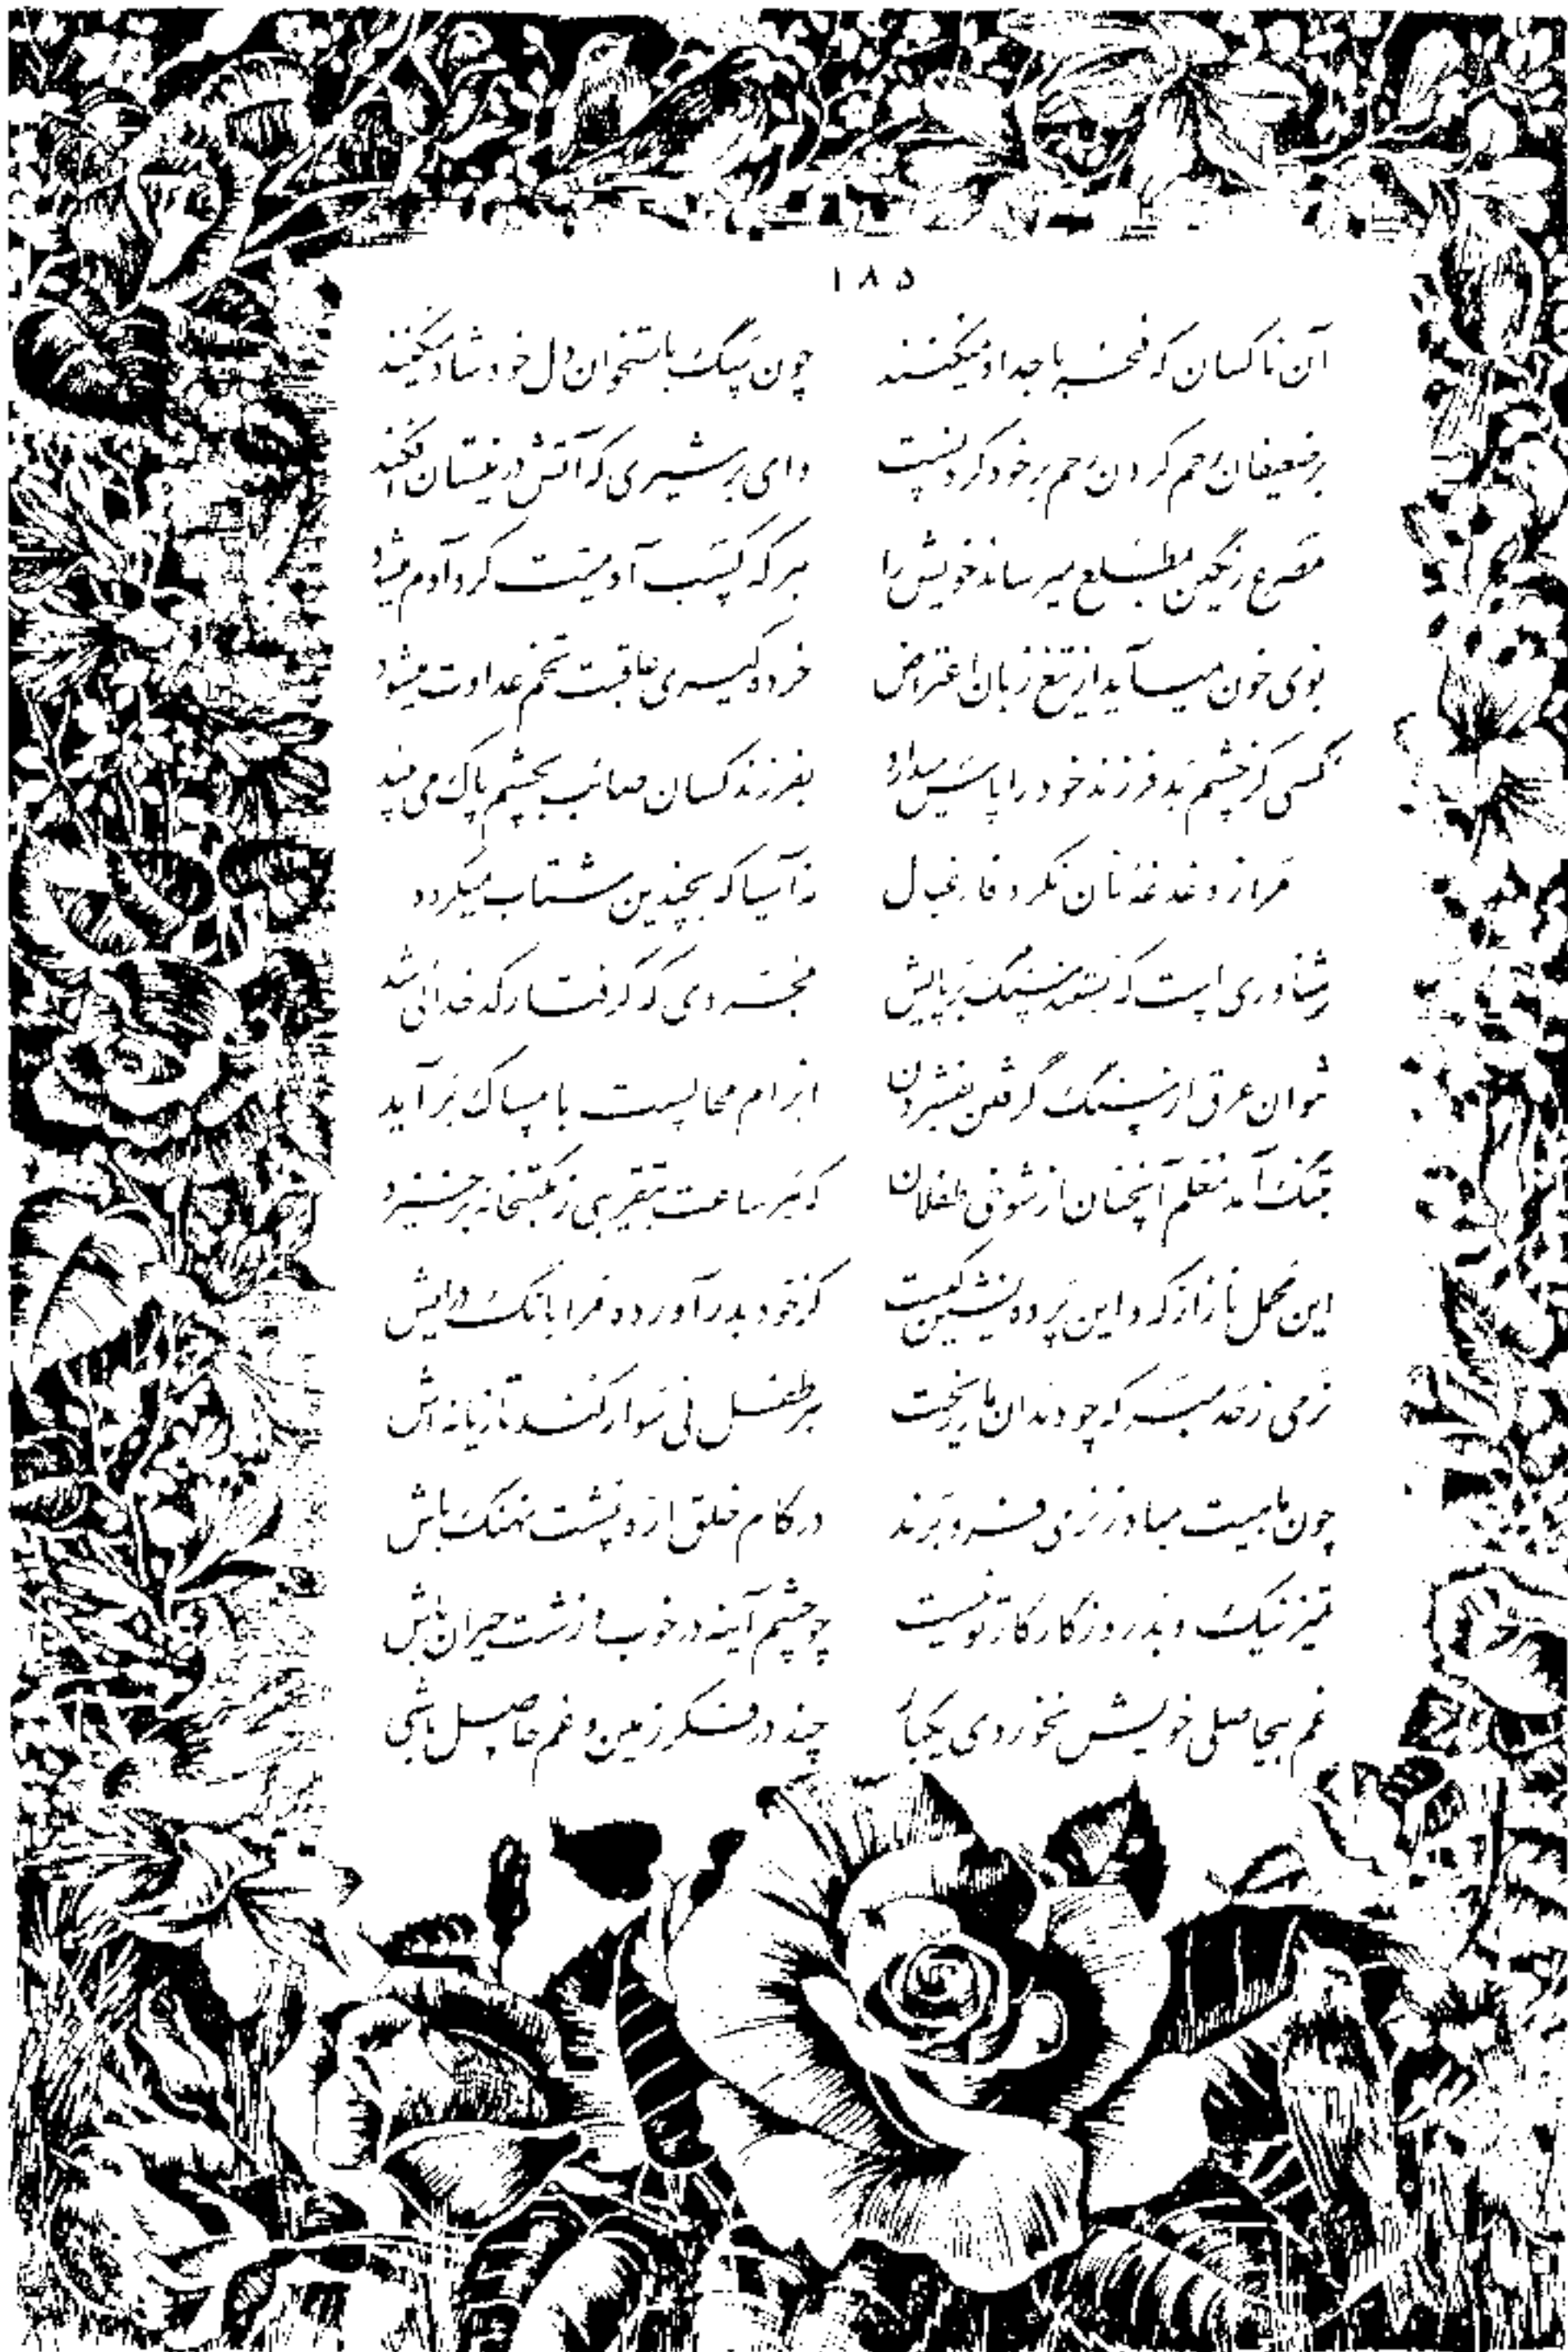 ۱۸۵
آن ناکسان که فخر باجداد میکنند چون سگ باستخوان دل خود شاد میکنند
بر ضعیفان رحم کردن رحم بر خود کردنست وای بر شیری که آتش در نیستان افکند
مصرع رنگین بمطلع میرساند خویش را هر که کسب آدمیت کرد آدم میشود
بوی خون میآید از تیغ زبان اعتراض خرده گیری عاقبت تخم عداوت میشود
کسی کز چشم بد فرزند خود را پاس میدارد بفرزند کسان صائب بچشم پاک می بیند
مرا ز دغدغهٔ نان نکرد فارغبال نه آسیا که بچندین شتاب میگردد
شناوری است که بستند سنگ بر پایش مجردی که گرفتار کدخدائی شد
نتوان عرق از سنگ گرفتن بفشردن ابرام محالست بامساک برآید
بتنگ آمد معلم آنچنان از شوخی طفلان که هر ساعت بتقریبی ز مکتبخانه برخیزد
این محمل ناز از که و این پرده نشین کیست کز خود بدر آورده مرا بانگ درایش
نرمی ز حد مبر که چو دندان مار ریخت هر طفل نی سوار کند تازیانه اش
چون ماهیت مباد ز نرمی فرو برند در کام خلق اره پشت نهنگ باش
تمیز نیک و بد روزگار کار تو نیست چو چشم آینه در خوب و زشت حیران باش
غم بیحاصلی خویش نخوردی یکبار چند در فکر زمین و غم حاصل باشی